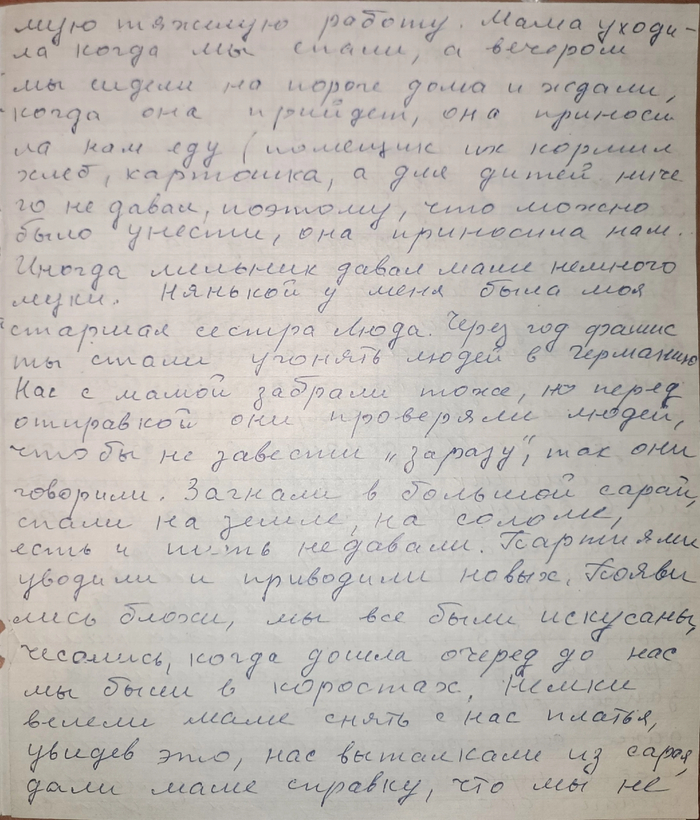 мую тяжелую работу. Мама уходи-
ла когда мы спали, а вечером
мы сидели на пороге дома и ждали,
когда она прийдет, она приноси
ла нам еду (помещик их кормил
хлеб, картошка, а для дитей ниче
го не давал, поэтому, что можно
было унести, она приносила нам.
Иногда мельник давал маме немного
муки. Нянькой у меня была моя
старшая сестра Люда. Через год фашис
ты стали угонять людей в Германию
Нас с мамой забрали тоже, но перед
отправкой они проверяли людей,
что бы не завести „заразу", так они
говорили. Загнали в большой сарай,
спали на земле, на соломе,
есть и пить недавали. Партиями
уводили и приводили новых. Появи
лись блохи, мы все были искусаны,
чесались, когда дошла очеред до нас
мы были в коростах. Немки
велели маме снять с нас платья,
увидев это, нас выталкали из сарая,
дали маме справку, что мы не